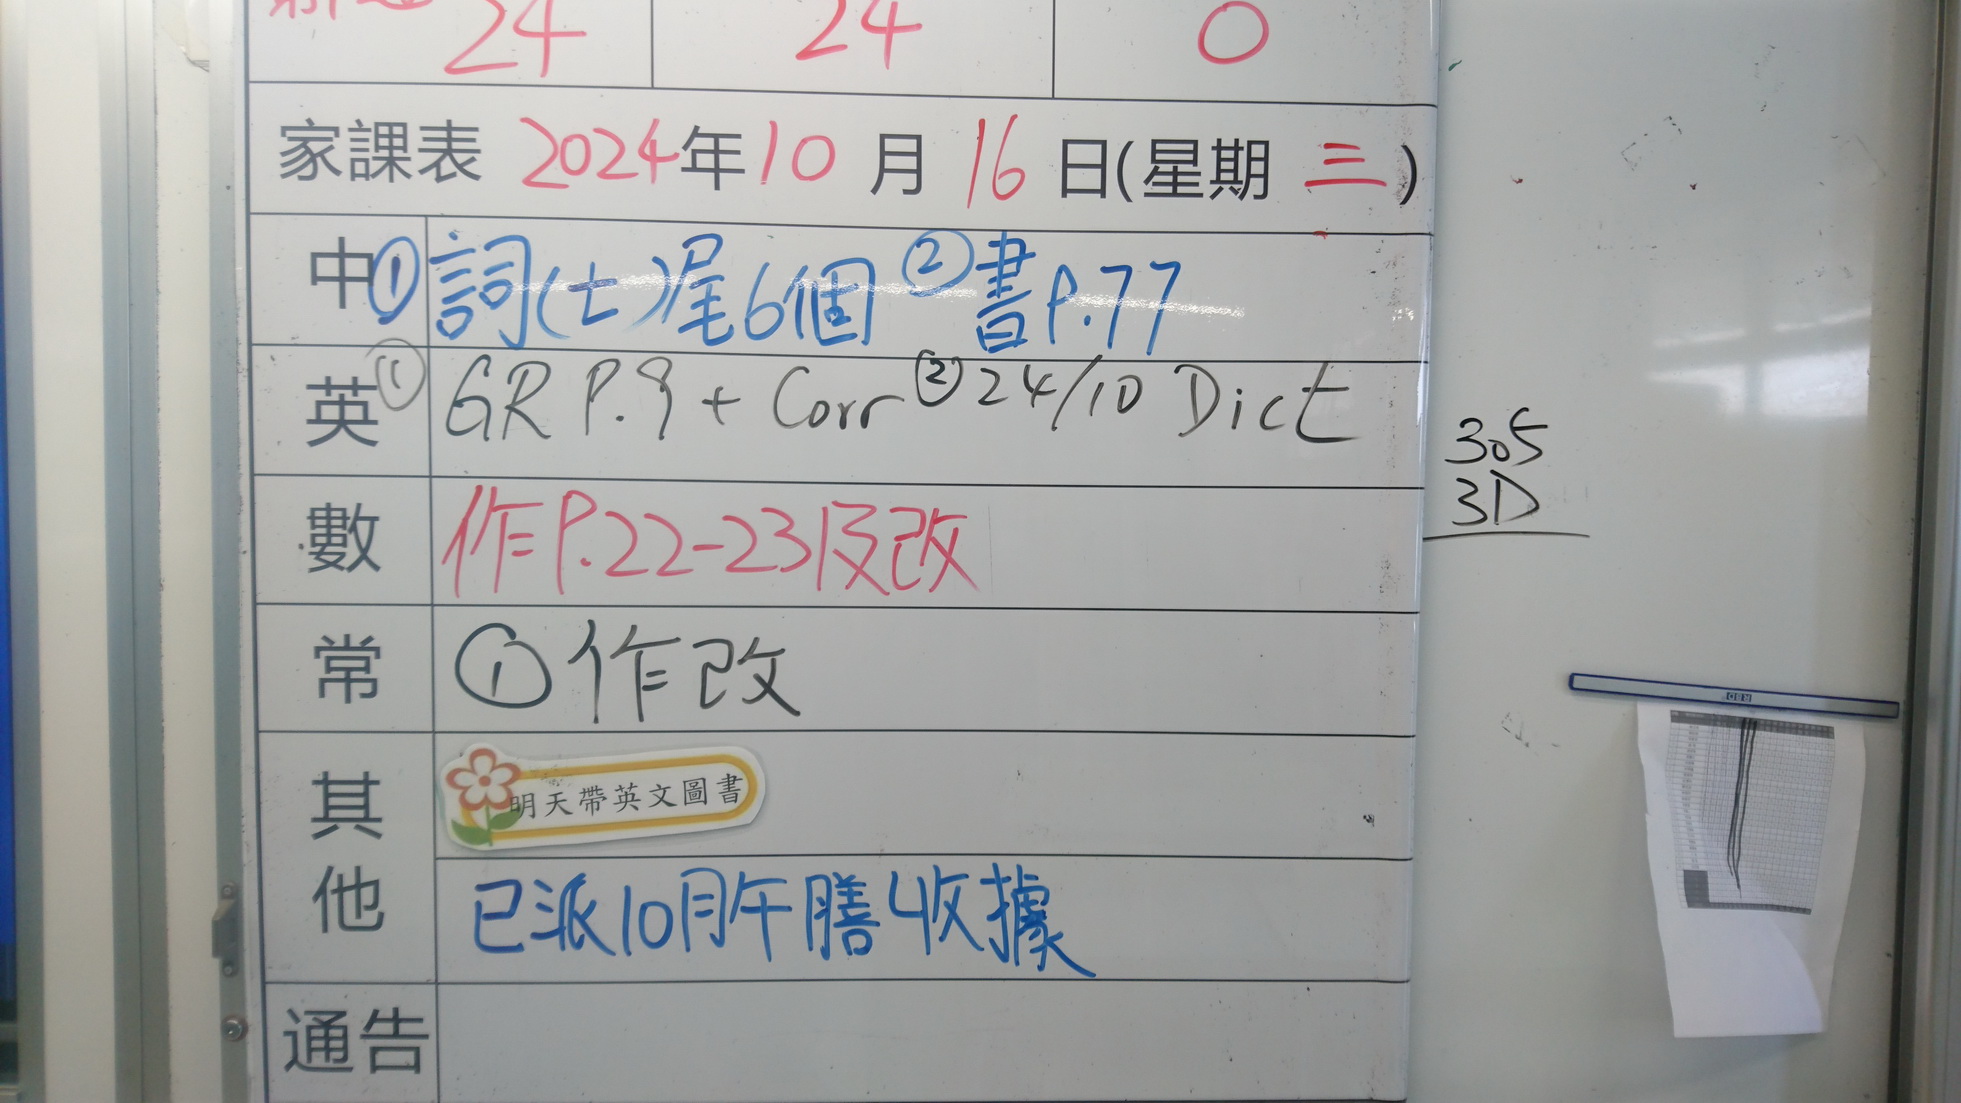 24 24 0
家課表 2024年10月16日(星期三)
中 ①詞(七)尾6個 ②書P.77
英 ①GR P.9 + Corr ②24/10 Dict
305
3D
數 作P.22-23及改
常 ①作改
其他
明天帶英文圖書
已派10月午膳收據
通告